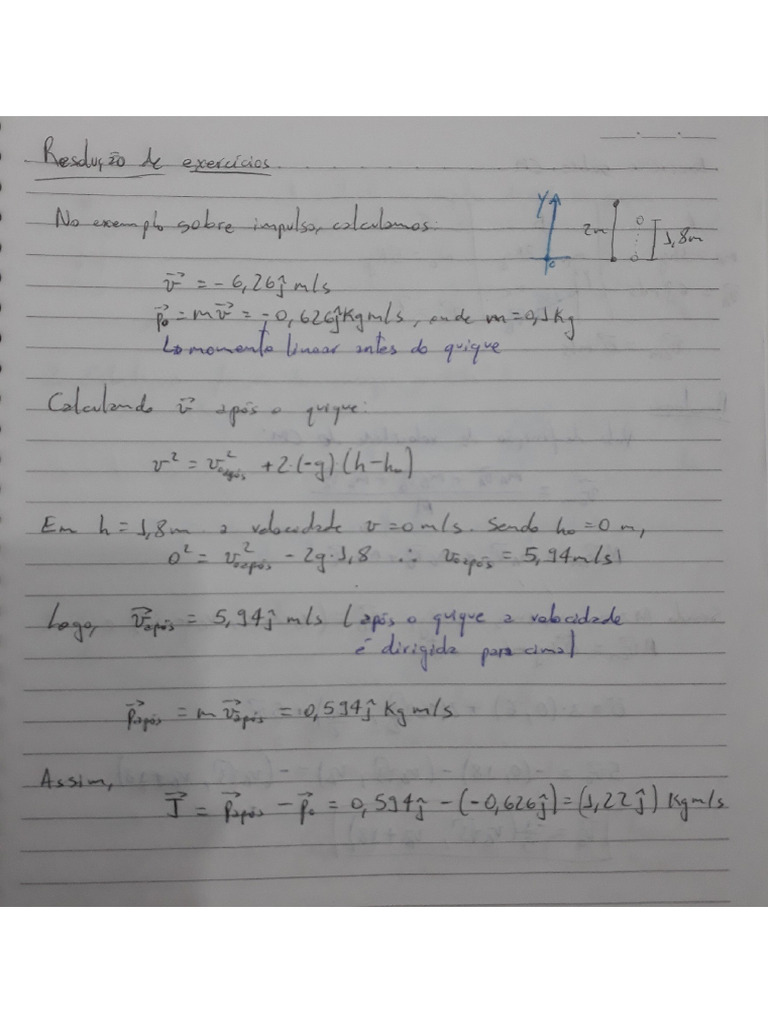 Resolução de exercícios.
No exemplo sobre impulso, calculamos:
Y
2m
1,8m
v⃗ = -6,26ĵ m/s
p⃗₀ = m v⃗ = -0,626ĵ Kgm/s, onde m=0,1Kg
↳ momento linear antes do quique
Calculando v⃗ após o quique:
v² = v²₀após + 2·(-g)(h-h₀)
Em h=1,8m a velocidade v=0m/s. Sendo h₀=0m,
0² = v²₀após - 2g·1,8 ∴ v₀após = 5,94m/s
Logo, v⃗após = 5,94ĵ m/s (após o quique a velocidade
é dirigida para cima)
p⃗após = m v⃗após = 0,594ĵ Kgm/s
Assim,
J⃗ = p⃗após - p⃗₀ = 0,594ĵ - (-0,626ĵ) = (1,22ĵ) Kgm/s